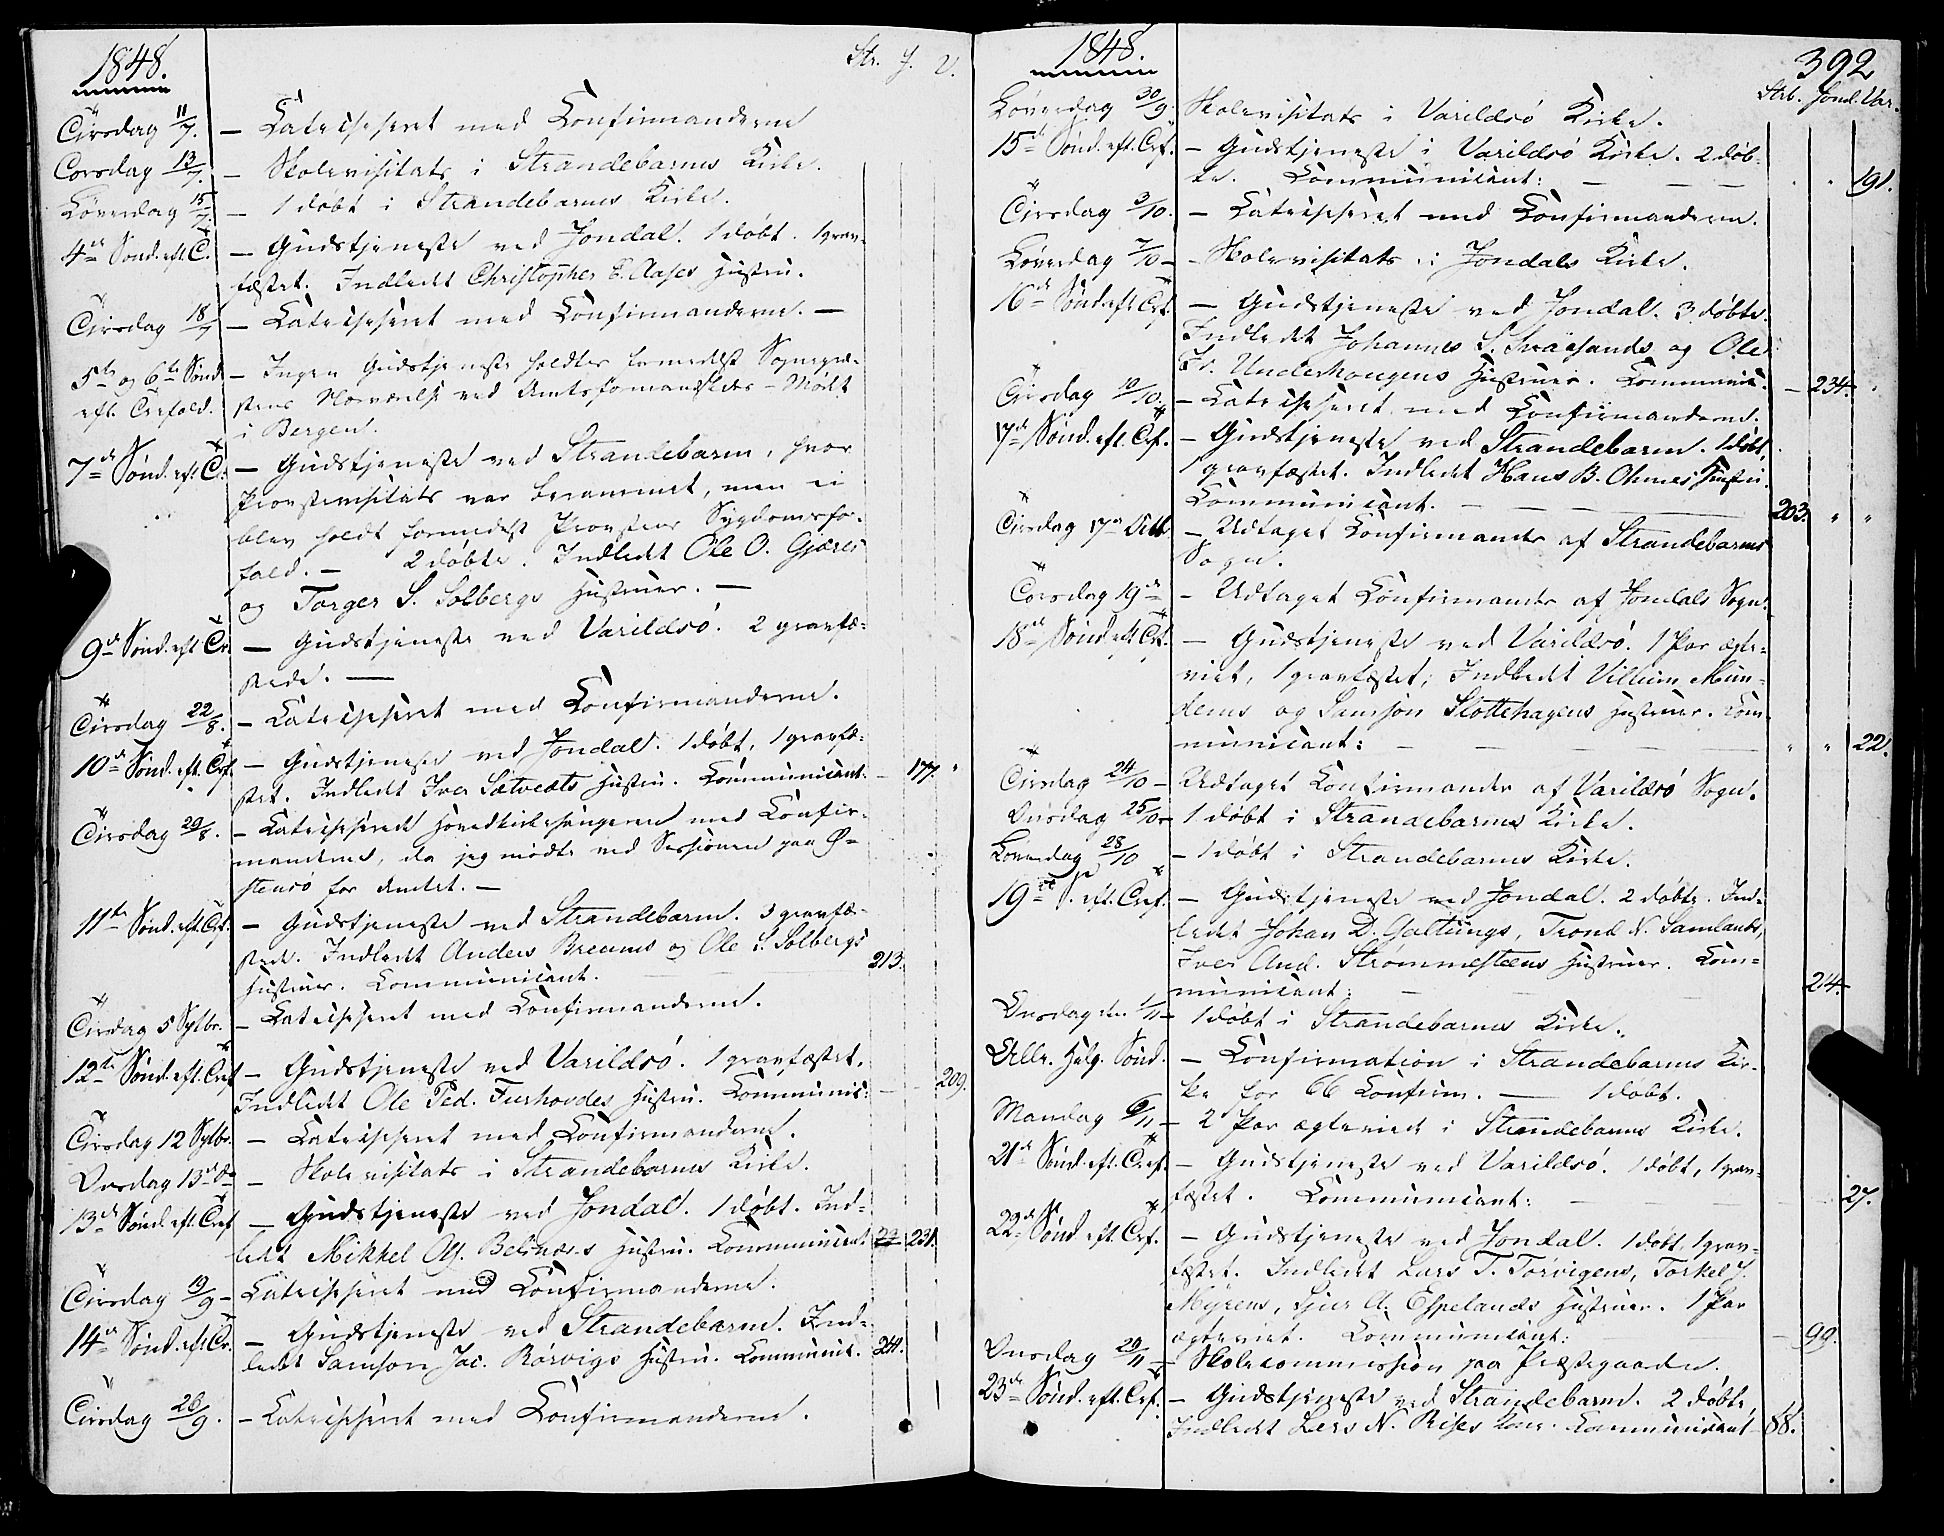 1848.
Str. J. V.
Tirsdag 11/7. – Catechiseret med Confirmanderne
Torsdag 13/7. – Skolevisitats i Strandebarms Kirke.
Løverdag 15/7. – 1 døbt i Strandebarms Kirke.
4de Sønd. eft. T. – Gudstjeneste ved Jondal. 1 døbt. 1 grav-
fæstet. Indledet Christopher E. Aases Hustru.
Tirsdag 18/7 – Catechiseret med Confirmanderne. –
5te og 6te Sønd. – Ingen Gudstjeneste holdtes formedelst Sognepræ-
eft. Trefold. stens Nærværelse ved Amtsformandskabs-Mødet
i Bergen.
7de Sønd. eft. Tr. – Gudstjeneste ved Strandebarm, hvor
Provstevisitats var berammet, men ei
blev holdt formedelst Provstens Sygdomsfor-
fald. – 2 døbte. Indledet Ole O. Gjæres
og Torger S. Solbergs Hustruer. –
9de Sønd. eft. Tr. – Gudstjeneste ved Varildsö. 2 gravfæ-
stede. –
Tirsdag 22/8. – Catechiseret med Confirmanderne.
10de Sønd. eft. Tref. – Gudstjeneste ved Jondal. 1 døbt, 1 gravfæ-
stet. Indledet Iver Sætvedts Hustru. Communicant. – 177. "
Tirsdag 29/8. – Catechiserede Hovedkirkesangeren med Confir-
manderne, da jeg mødte ved Sessionen paa Ø-
stensö for Amtet. –
11te Sønd. eft. Tref. – Gudstjeneste ved Strandebarm. 3 gravfæ-
stede. Indledet Anders Breums og Ole S. Solbergs
Hustruer. Communicant. 213.
Tirsdag 5 Sptbr. – Catechiseret med Confirmanderne.
12te Sønd. eft. Tref – Gudstjeneste ved Varildsö. 1 gravfæstet.
Indledet Ole Ped. Furhovdes Hustru. Communic: – – 209.
Tirsdag 12 Sptbr. – Catechiseret med Confirmanderne.
Onsdag 13de Do – Skolevisitats i Strandebarms Kirke.
13de Sønd. eft. Tref – Gudstjeneste ved Jondal. 1 døbt. Ind-
ledet Mikkel Belsnæs Hustru. Communicant 231.
Tirsdag 19/9 – Catechiseret med Confirmanderne.
14de Sønd. eft. Tr. – Gudstjeneste ved Strandebarm. Ind-
ledet Samson Jac. Rörvigs Hustru. Communic. 241.
Tirsdag 26/9. – Catechiseret med Confirmanderne.
1848.
392
Strb. Jond. Var.
Løverdag 30/9. Skolevisitats i Varildsö Kirke.
15de Sønd. eft. Tref. – Gudstjeneste i Varildsö Kirke. 2 døb-
te. Communicant: – – – " " 191.
Tirsdag 3/10. – Catechiseret med Confirmanderne.
Løverdag 7/10 – Skolevisitats i Jondals Kirke.
16de Sønd. eft. Tref. – Gudstjeneste ved Jondal. 3 døbte.
Indledet Johannes S. Svåsands og Ole
Fr. Underhougens Hustruer. Communic. – 234. "
Tirsdag 10/10. – Catechiseret med Confirmanderne.
17de Sønd. eft. Tref. – Gudstjeneste ved Strandebarm. 1 døbt,
1 gravfæstet. Indledet Hans B. Ohmes Hustru.
Communicant. – – – 203. " "
Tirsdag 17de Octb. – Udtaget Confirmander af Strandebarms
Sogn.
Torsdag 19de – Udtaget Confirmander af Jondals Sogn.
18de Sønd. eft. Tref. – Gudstjeneste ved Varildsö. 1 Par ægte-
viet, 1 gravfæstet; Indledet Villum Mun-
dems og Samson Slottehagens Hustruer. Com-
municant: – – – " " 22.
Tirsdag 24/10 – Udtaget Confirmander af Varildsö Sogn.
Onsdag 25/10 – 1 døbt i Strandebarms Kirke.
Løverdag 28/10 – 1 døbt i Strandebarms Kirke.
19de S. eft. Tref. – Gudstjeneste ved Jondal. 2 døbte. Ind-
ledet Johan D. Galtungs, Trond N. Samlands,
Iver And. Strømmesteens Hustruer. Com-
municant: – – – 24.
Onsdag den 1/11 – 1 døbt i Strandebarms Kirke.
Alle Helg. Sønd. – Confirmation i Strandebarms Kir-
ke for 66 Confirm. – 1 døbt.
Mandag 6/11 – 2 Par ægteviede i Strandebarms Kirke.
21de Sønd. eft. Tref. – Gudstjeneste ved Varildsö. 1 døbt, 1 grav-
fæstet. Communicant: – – 27.
22de Sønd. eft. Tref. – Gudstjeneste ved Jondal. 1 døbt, 1 grav-
fæstet. Indledet Lars T. Torvigens, Torkel J.
Myrens, Sjur A. Espelands Hustruer. 1 Par
ægteviet. Communicant: – 99.
Onsdag 29/11 – Skolecommission paa Præstegaarden.
23de Sønd. eft. Tref. – Gudstjeneste ved Strandebarm. 2 døbte,
Indledet Lars N. Rises Kone. Communicant 88.